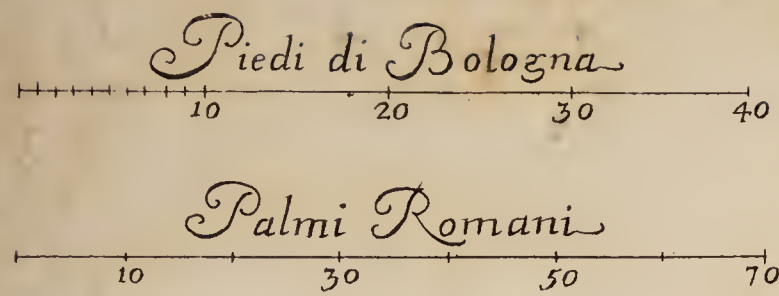 Piedi di Bologna
10 20 30 40
Palmi Romani
10 30 50 70